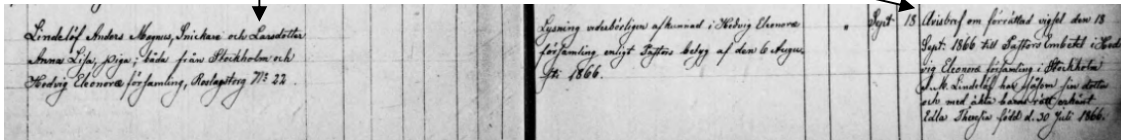 Lindelöf Anders Magnus, Snickare och Larsdotter
Anna Lisa, piga; båda från Stockholm och
Hedvig Eleonora församling, Roslagstorg No 22.
Lysning vederbörligen afkunnad i Hedvig Eleonora
församling enligt Pastors betyg af den 6 Augus-
ti 1866.
" Sept 18
Avisbref om förrättad vigsel den 18
Sept. 1866 till Pastors Embetet i Hed-
vig Eleonora församling i Stockholm
A. M. Lindelöf har såsom sin dotter
och med äkta barns rätt erkänt
Edla Theresia född d. 30 Juli 1866.